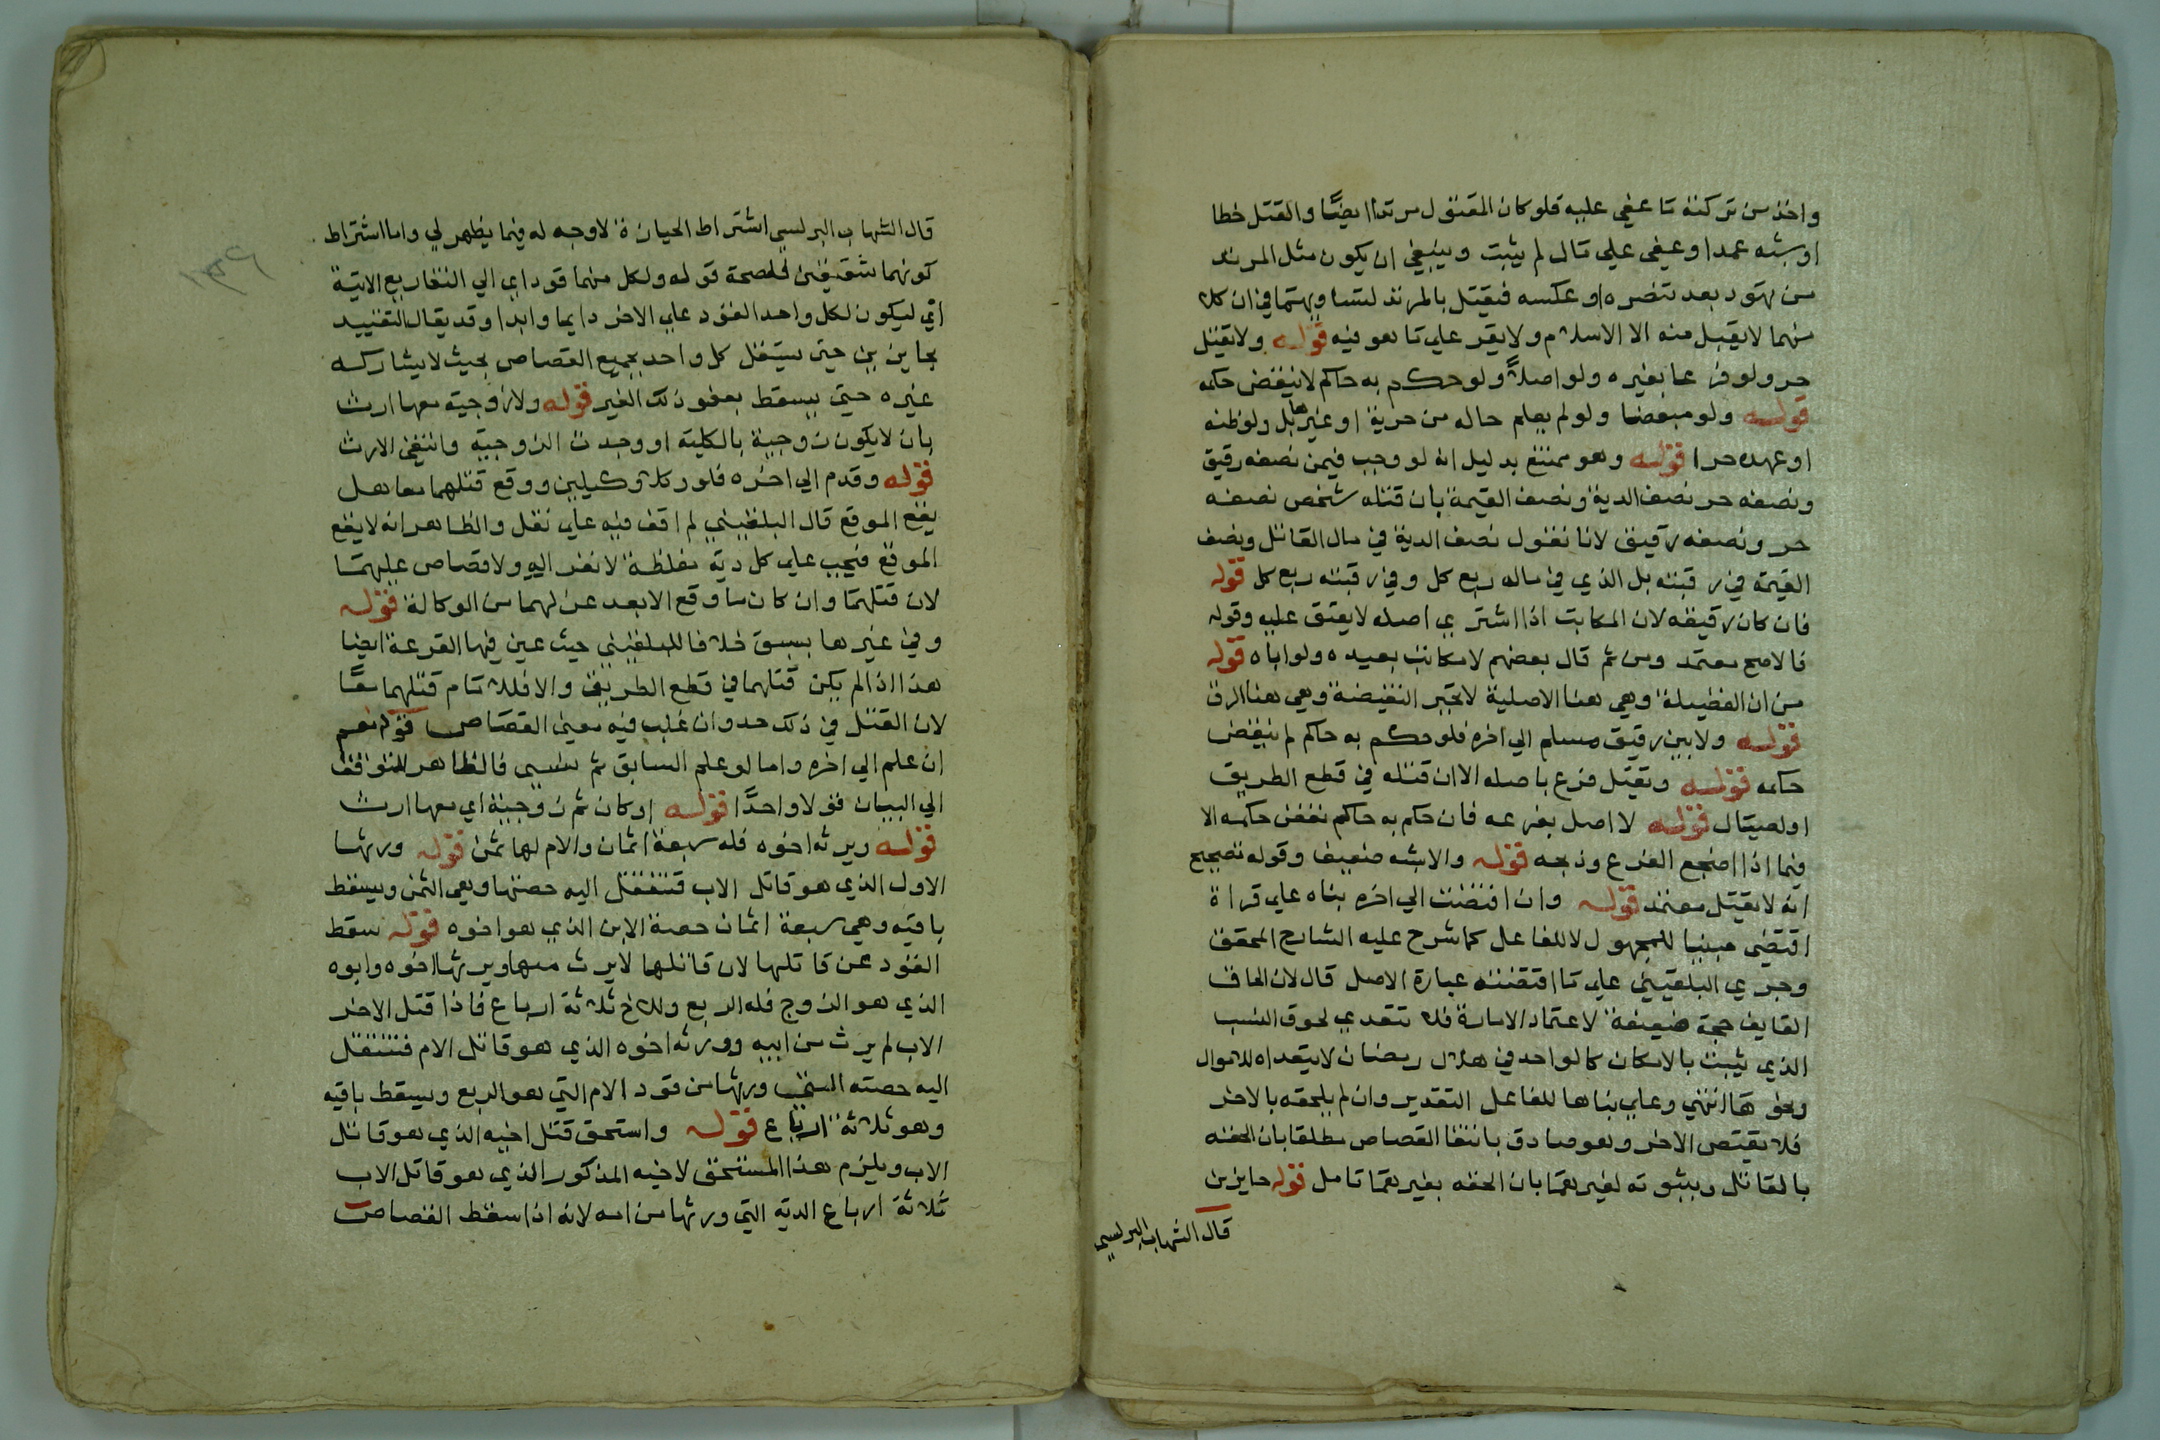 واخذ من تركته ما عفي عليه فلو كان المقتول مرتدا ايضا والقتل خطا
او شبه عمد او عفي علي مال لم يثبت وينبغي ان يكون مثل المرتد
من تهود بعد تنصره او عكسه فيقتل بالمرتد لتساويهما في ان كلا
منهما لا يقبل منه الا الاسلام ولا يقر علي ما هو فيه قوله ولا يقتل
حر ولو ذميا بغيره ولو اصلا ولو حكم به حاكم لا ينقض حكمه
قوله ولو مبعضا ولو لم يعلم حاله من حرية او غيرها بل ولو ظنه
او عهده حرا قوله وهو ممتنع بدليل انه لو وجب فيمن نصفه رقيق
ونصفه حر نصف الدية ونصف القيمة بان قتله شخص نصفه
حر ونصفه رقيق لانا نقول نصف الدية في مال القاتل ونصف
القيمة في رقبته بل الذي في ماله ربع كل وفي رقبته ربع كل قوله
فان كان رقيقه لان المكاتب اذا اشتري اصله لا يعتق عليه وقوله
فالاصح معتمد ومن ثم قال بعضهم لا مكاتب بعبده ولو اباه قوله
من ان الفضيلة وهي هنا الاصلية لا تجبر النقيضة وهي هنا الرق
قوله ولا بين رقيق مسلم الي اخره فلو حكم به حاكم لم ينقض
حكمه قوله ويقتل فرع باصله الا ان قتله في قطع الطريق
او لصيال قوله لا اصل بفرعه فان حكم به حاكم نقض حكمه الا
فيما اذا اضجع الفرع وذبحه قوله والاشبه ضعيف وقوله تصحيح
انه لا يقتل معتمد قوله وان اقتضت الي اخره بناه علي قراة
اقتضي مبنيا للمجهول لا للفاعل كما شرح عليه الشارح المحقق
وجري البلقيني علي ما اقتضته عبارة الاصل قال لان الحاق
القايف حجة ضعيفة لاعتماد الامارة فلا تتعدي لحوق النسب
الذي يثبت بالامكان كالواحد في هلال رمضان لا يتعداه للاموال
ونحوها انتهي وعلي بناها للفاعل التقدير وان لم يلحقه بالاخر
فلا يقتص الاخر وهو صادق بانتفا القصاص مطلقا بان الحقه
بالقاتل وبثبوته لغيرهما بان الحقه بغيرهما تامل قوله حايزين
قال الشهاب البرلسي
قال الشهاب البرلسي اشتراط الحيازة لا وجه له فيما يظهر لي واما اشتراط
كونهما شقيقين فلصحة قوله ولكل منهما قود اي الي التفاريع الاتية
اي ليكون لكل واحد القود علي الاخر دايما وابدا وقد يقال التقييد
بحايزين حتي يستقل كل واحد بجميع القصاص بحيث لا يشاركه
غيره حتي يسقط بعفو ذلك الغير قوله ولا زوجية معها ارث
بان لا يكون زوجية بالكلية او وجدت الزوجية وانتفي الارث
قوله وقدم الي اخره فلو وكلا وكيلين ووقع قتلهما معا هل
يقع الموقع قال البلقيني لم اقف فيه علي نقل والظاهر انه لا يقع
الموقع فيجب علي كل دية مغلظة لا نغر اليه ولا قصاص عليهما
لان قتلهما وان كان معا وقع الا بعد عزلهما من الوكالة قوله
وفي غيرها بسبق خلافا للبلقيني حيث عين فيها القرعة ايضا
هذا اذا لم يكن قتلهما في قطع الطريق والا فللامام قتلهما معا
لان القتل في ذلك حد وان غلب فيه معني القصاص قوله نعم
ان علم الي اخره واما لو علم السابق ثم نسي فالظاهر التوقف
الي البيان قولا واحدا قوله او كان ثم زوجية اي معها ارث
قوله ويرثه اخوه فله سبعة اثمان والام لها ثمن قوله ورثها
الاول الذي هو قاتل الاب فتنتقل اليه حصتها وهي الثمن ويسقط
باقيه وهي سبعة اثمان حصة الابن الذي هو اخوه قوله سقط
القود عن قاتلها لان قاتلها لا يرث منها ويرثها اخوه وابوه
الذي هو الزوج فله الربع وللاخ ثلاثة ارباع فاذا قتل الاخر
الاب لم يرث من ابيه وورثه اخوه الذي هو قاتل الام فتنتقل
اليه حصته التي ورثها من قود الام التي هو الربع ويسقط باقيه
وهو ثلاثة ارباع قوله واستحق قتل اخيه الذي هو قاتل
الاب ويلزم هذا المستحق لاخيه المذكور الذي هو قاتل الاب
ثلاثة ارباع الدية التي ورثها من امه لانه اذا سقط القصاص